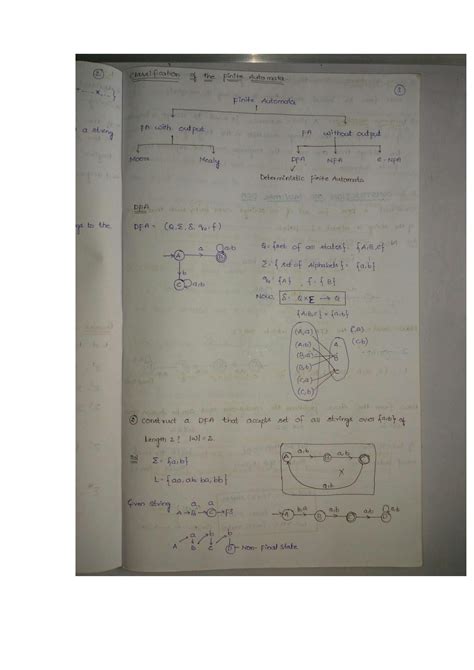 Classification of the finite Automata
①
Finite Automata
FA with output
FA without output
Moore
Mealy
DFA
NFA
ε-NFA
Deterministic Finite Automata
②
a string
to the
DFA
DFA = (Q, Σ, δ, q₀, f)
Q = {set of all states} = {A,B,C}
Σ = {set of Alphabets} = {a,b}
q₀ = {A} , f = {B}
Now, δ = Q x Σ → Q
{A,B,C} x {a,b}
A
a
B
a,b
b
C
a,b
(A,a)
(A,b)
(B,a)
(B,b)
(C,a)
(C,b)
A
B
C
(C,b)
② construct a DFA that accepts set of all strings over {a,b} of
Length 2? |w|=2.
Σ = {a,b}
L = {aa, ab, ba, bb}
A
a,b
B
a,b
X
a,b
Given string
A a B a C
b,a
a,b
a,b
a,b
A
B
C
D
A a B b C b D - Non-final state